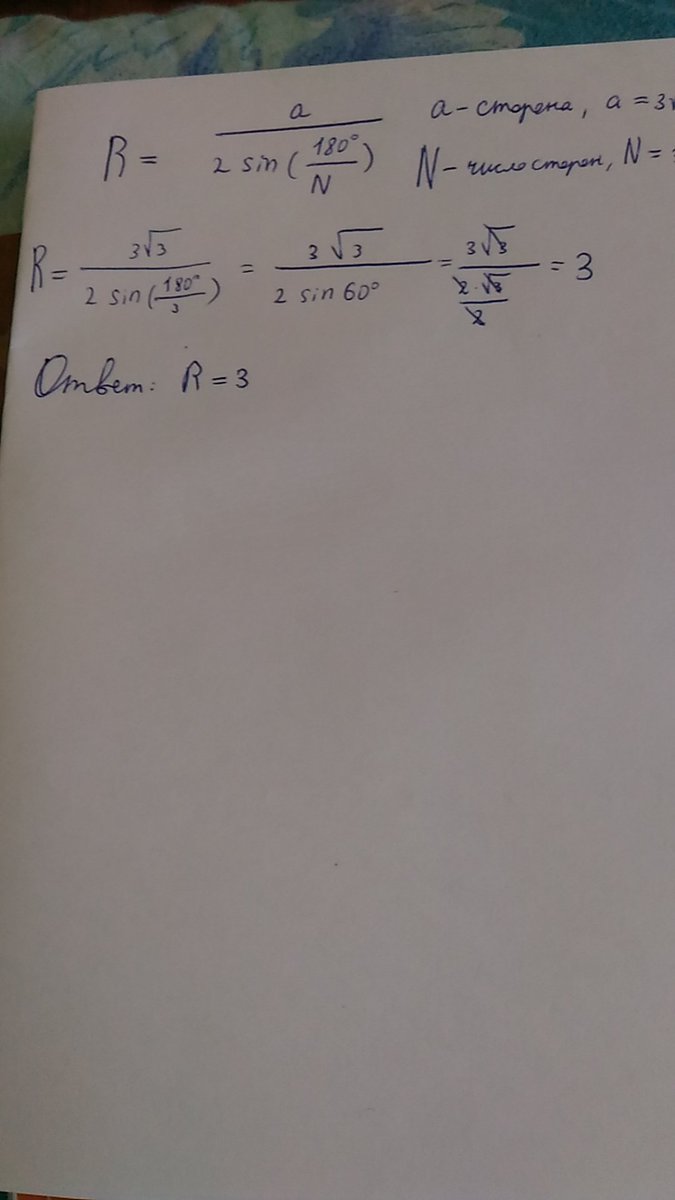 R = a / (2 sin(180°/N)) a - сторона, a = 3
N - число сторон, N =
R = 3√3 / (2 sin(180°/3)) = 3√3 / (2 sin 60°) = 3√3 / (2·√3/2) = 3
Ответ: R = 3